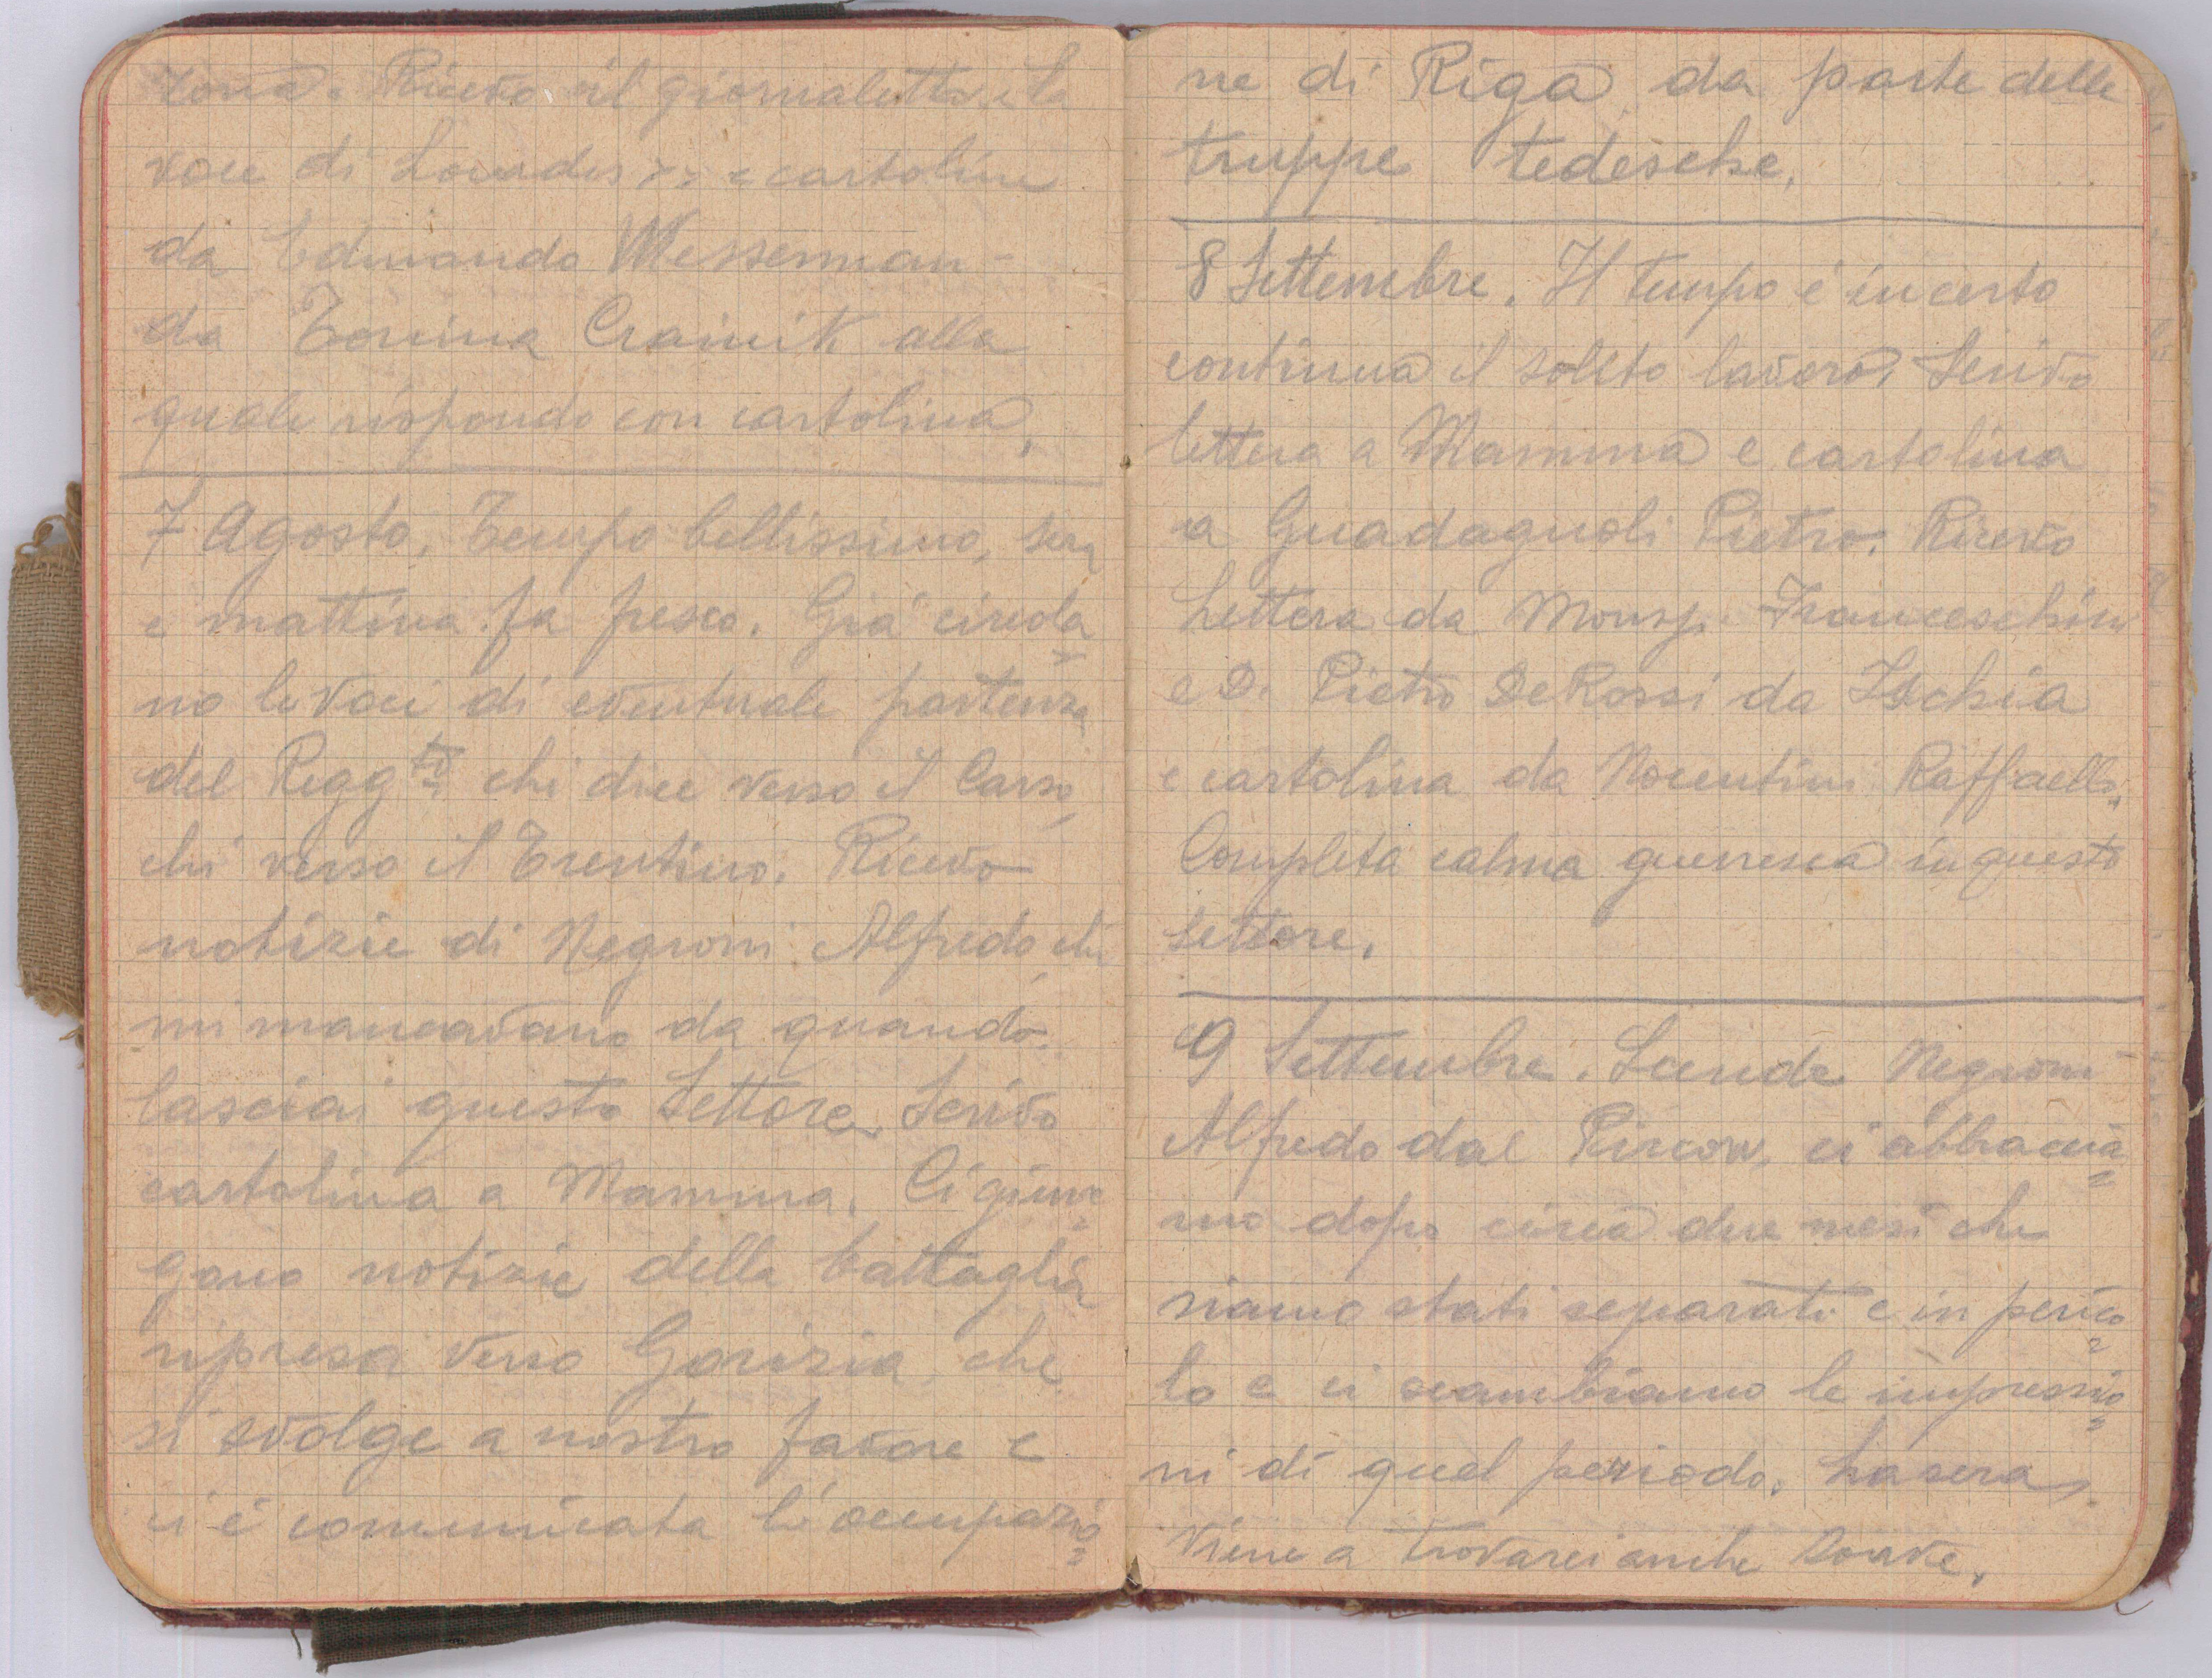 zona. Ricevo il giornaletto "La
voce di Lourdes" e cartoline
da Edmondo Messerman -
da Tonina Crainik alla
quale rispondo con cartolina.
7 Agosto. Tempo bellissimo, sera
e mattina fa fresco. Già circola
no le voci di eventuale partenza
del Reggto chi dice verso il Carso,
chi verso il Trentino. Ricevo
notizie di Negroni Alfredo che
mi mancavano da quando
lasciai questo Settore. Scrivo
cartolina a Mamma. Ci giun=
gono notizie della battaglia
ripresa verso Gorizia che
si svolge a nostro favore e
ci è comunicata l'occupazio=
ne di Riga da parte delle
truppe tedesche.
8 Settembre. Il tempo è incerto
continua il solito lavoro. Scrivo
lettera a Mamma e cartolina
a Guadagnoli Pietro. Ricevo
Lettera da Monsg. Franceschini
e D. Pietro De Rossi da Ischia
e cartolina da Nocentini Raffaello.
Completa calma guerresca in questo
settore.
9 Settembre. Scende Negroni
Alfredo dal ci abbraccia=
mo dopo circa due mesi che
siamo stati separati e in perico=
lo e ci scambiamo le impressio=
ni di quel periodo. La sera
viene a trovarci anche Soave.